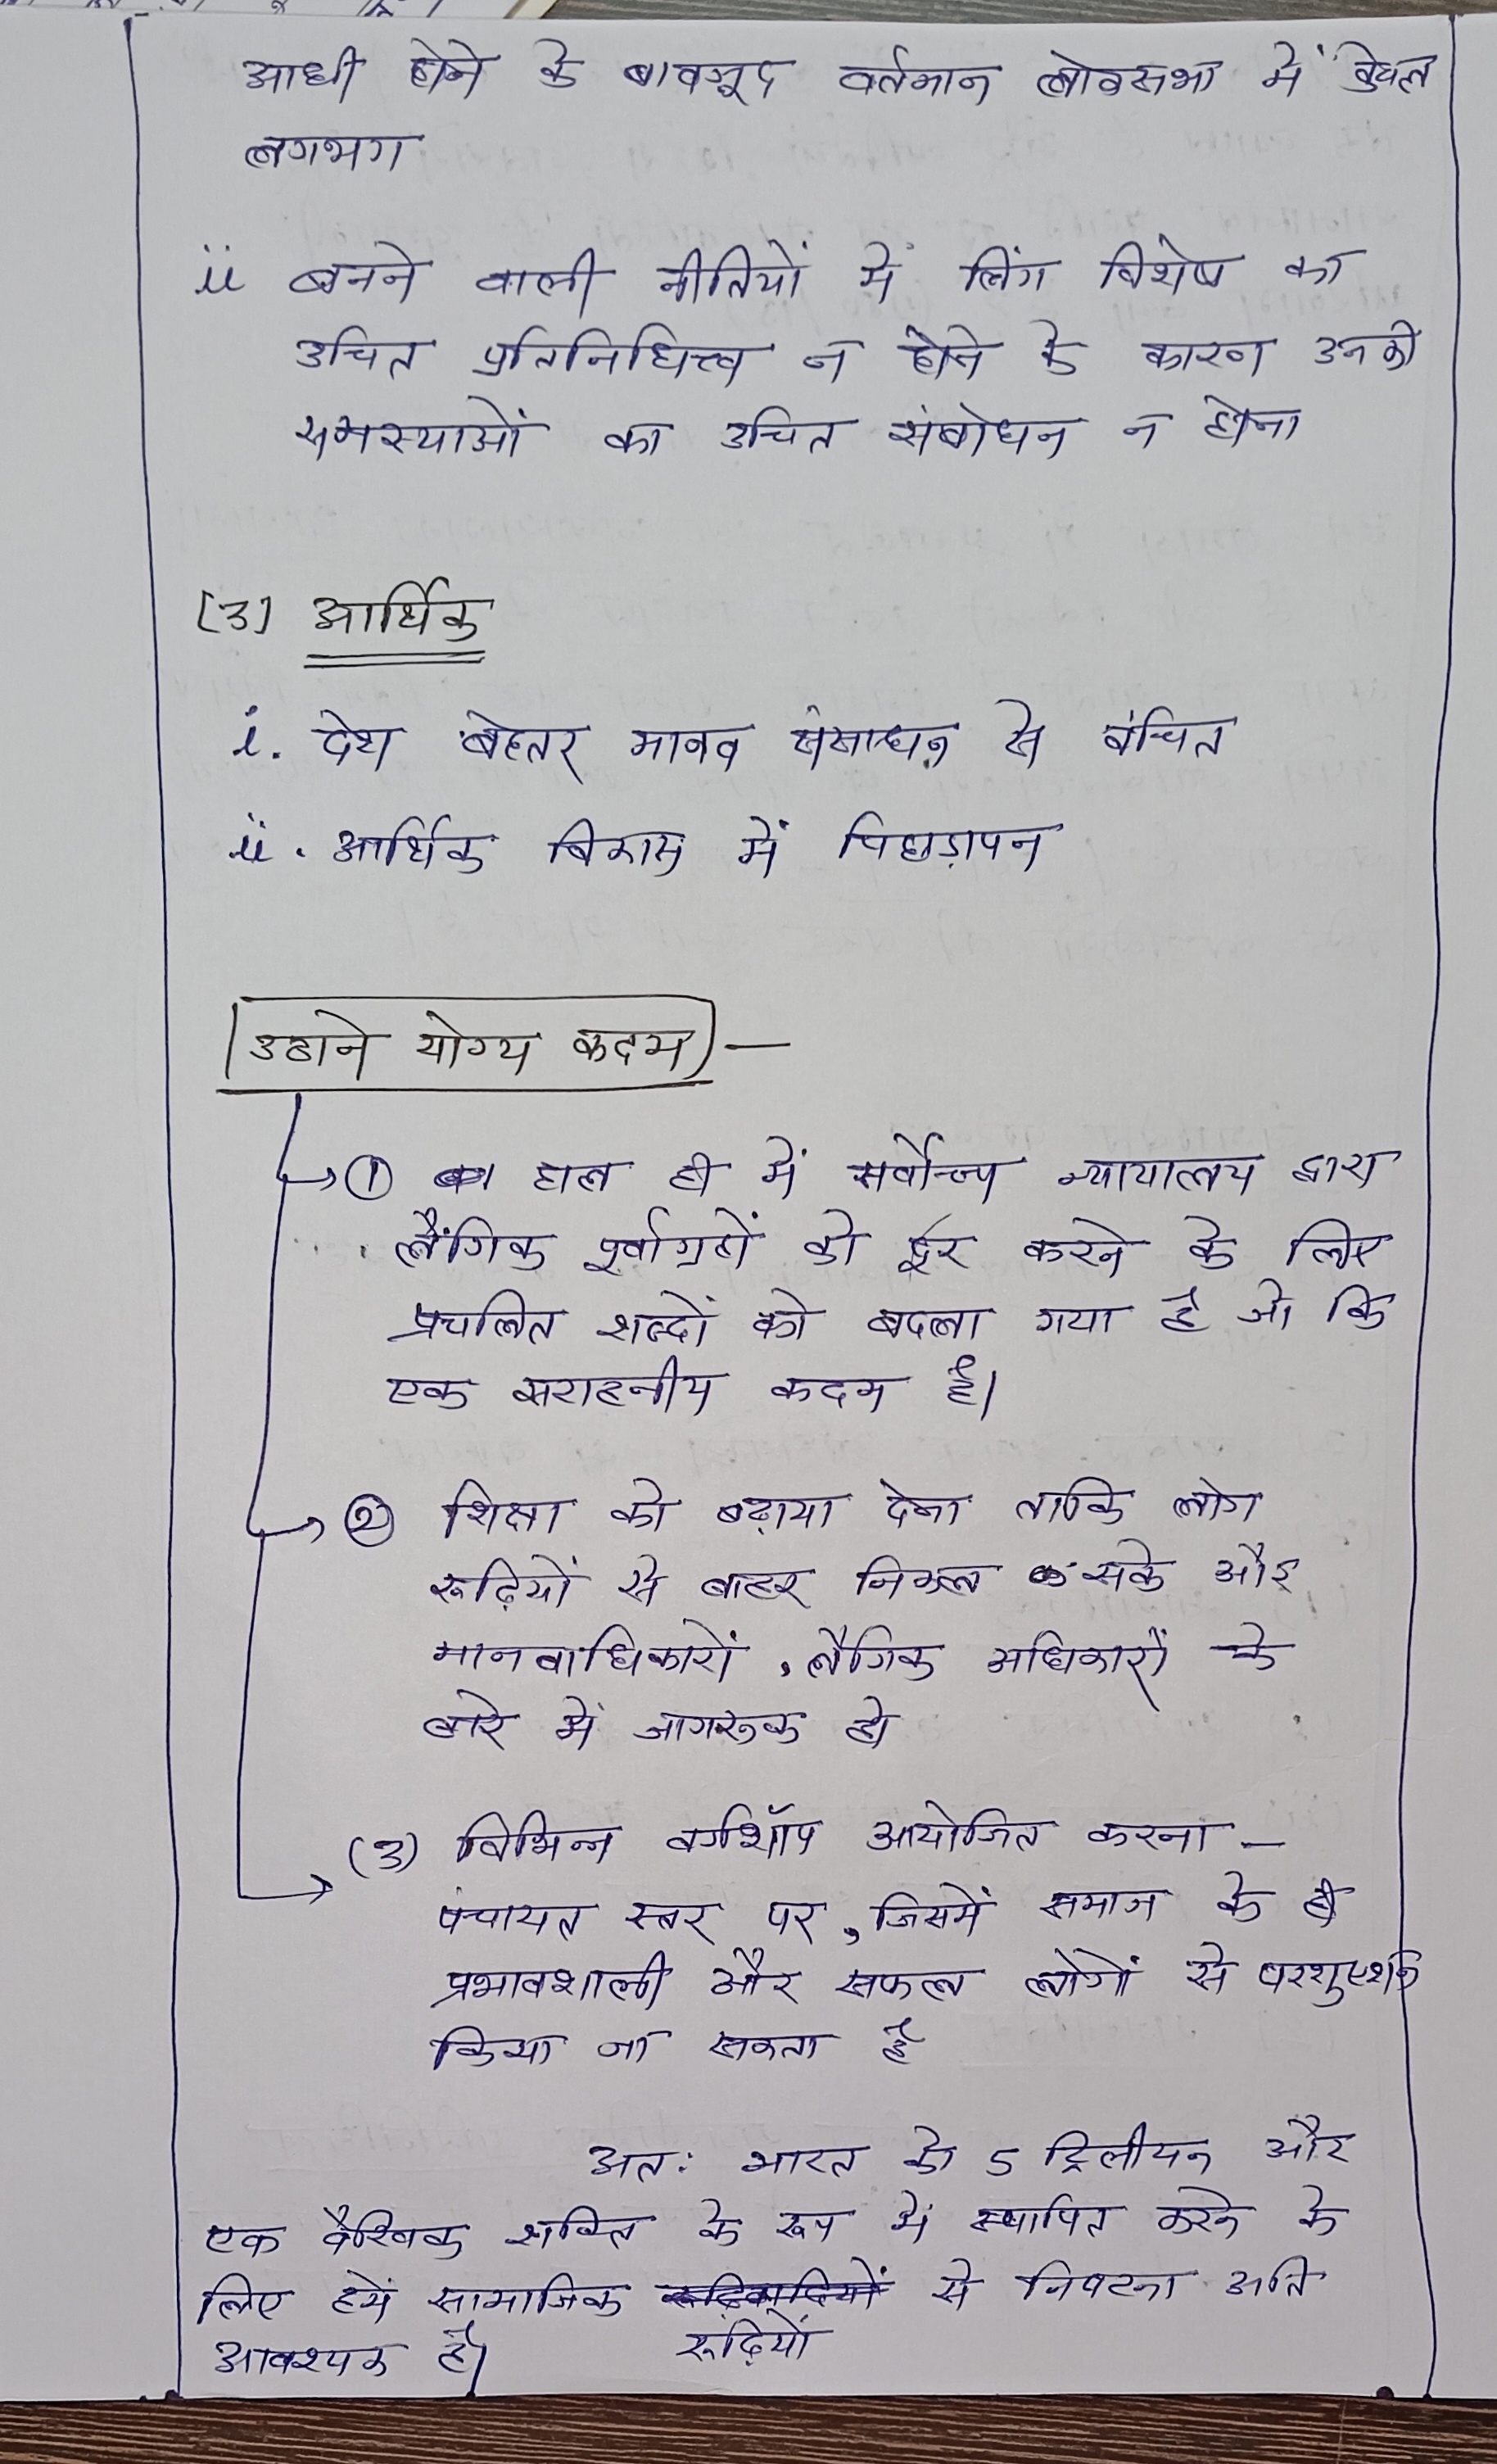 आधी होने के बावजूद वर्तमान लोकसभा में केवल
लगभग
ii बनने वाली नीतियों में लिंग विशेष का
उचित प्रतिनिधित्त्व न होने के कारण उनकी
समस्याओं का उचित संबोधन न होना
(3) आर्थिक
i. देश बेहतर मानव संसाधन से वंचित
ii. आर्थिक विकास में पिछड़ापन
उठाने योग्य कदम —
→ ① हाल ही में सर्वोच्च न्यायालय द्वारा
लैंगिक पूर्वाग्रहों को दूर करने के लिए
प्रचलित शब्दों को बदला गया है जो कि
एक सराहनीय कदम है।
→ ② शिक्षा को बढ़ावा देना ताकि लोग
रूढ़ियों से बाहर निकल सके और
मानवाधिकारों, लैंगिक अधिकारों के
बारे में जागरूक हो
→ (3) विभिन्न वर्कशॉप आयोजित करना —
पंचायत स्तर पर, जिसमें समाज के
प्रभावशाली और सफल लोगों से
किया जा सकता है
अत: भारत को 5 ट्रिलीयन और
एक वैश्विक शक्ति के रूप में स्थापित करने के
लिए हमें सामाजिक रूढ़िवादियों से निपटना अति
आवश्यक है। रूढ़ियों